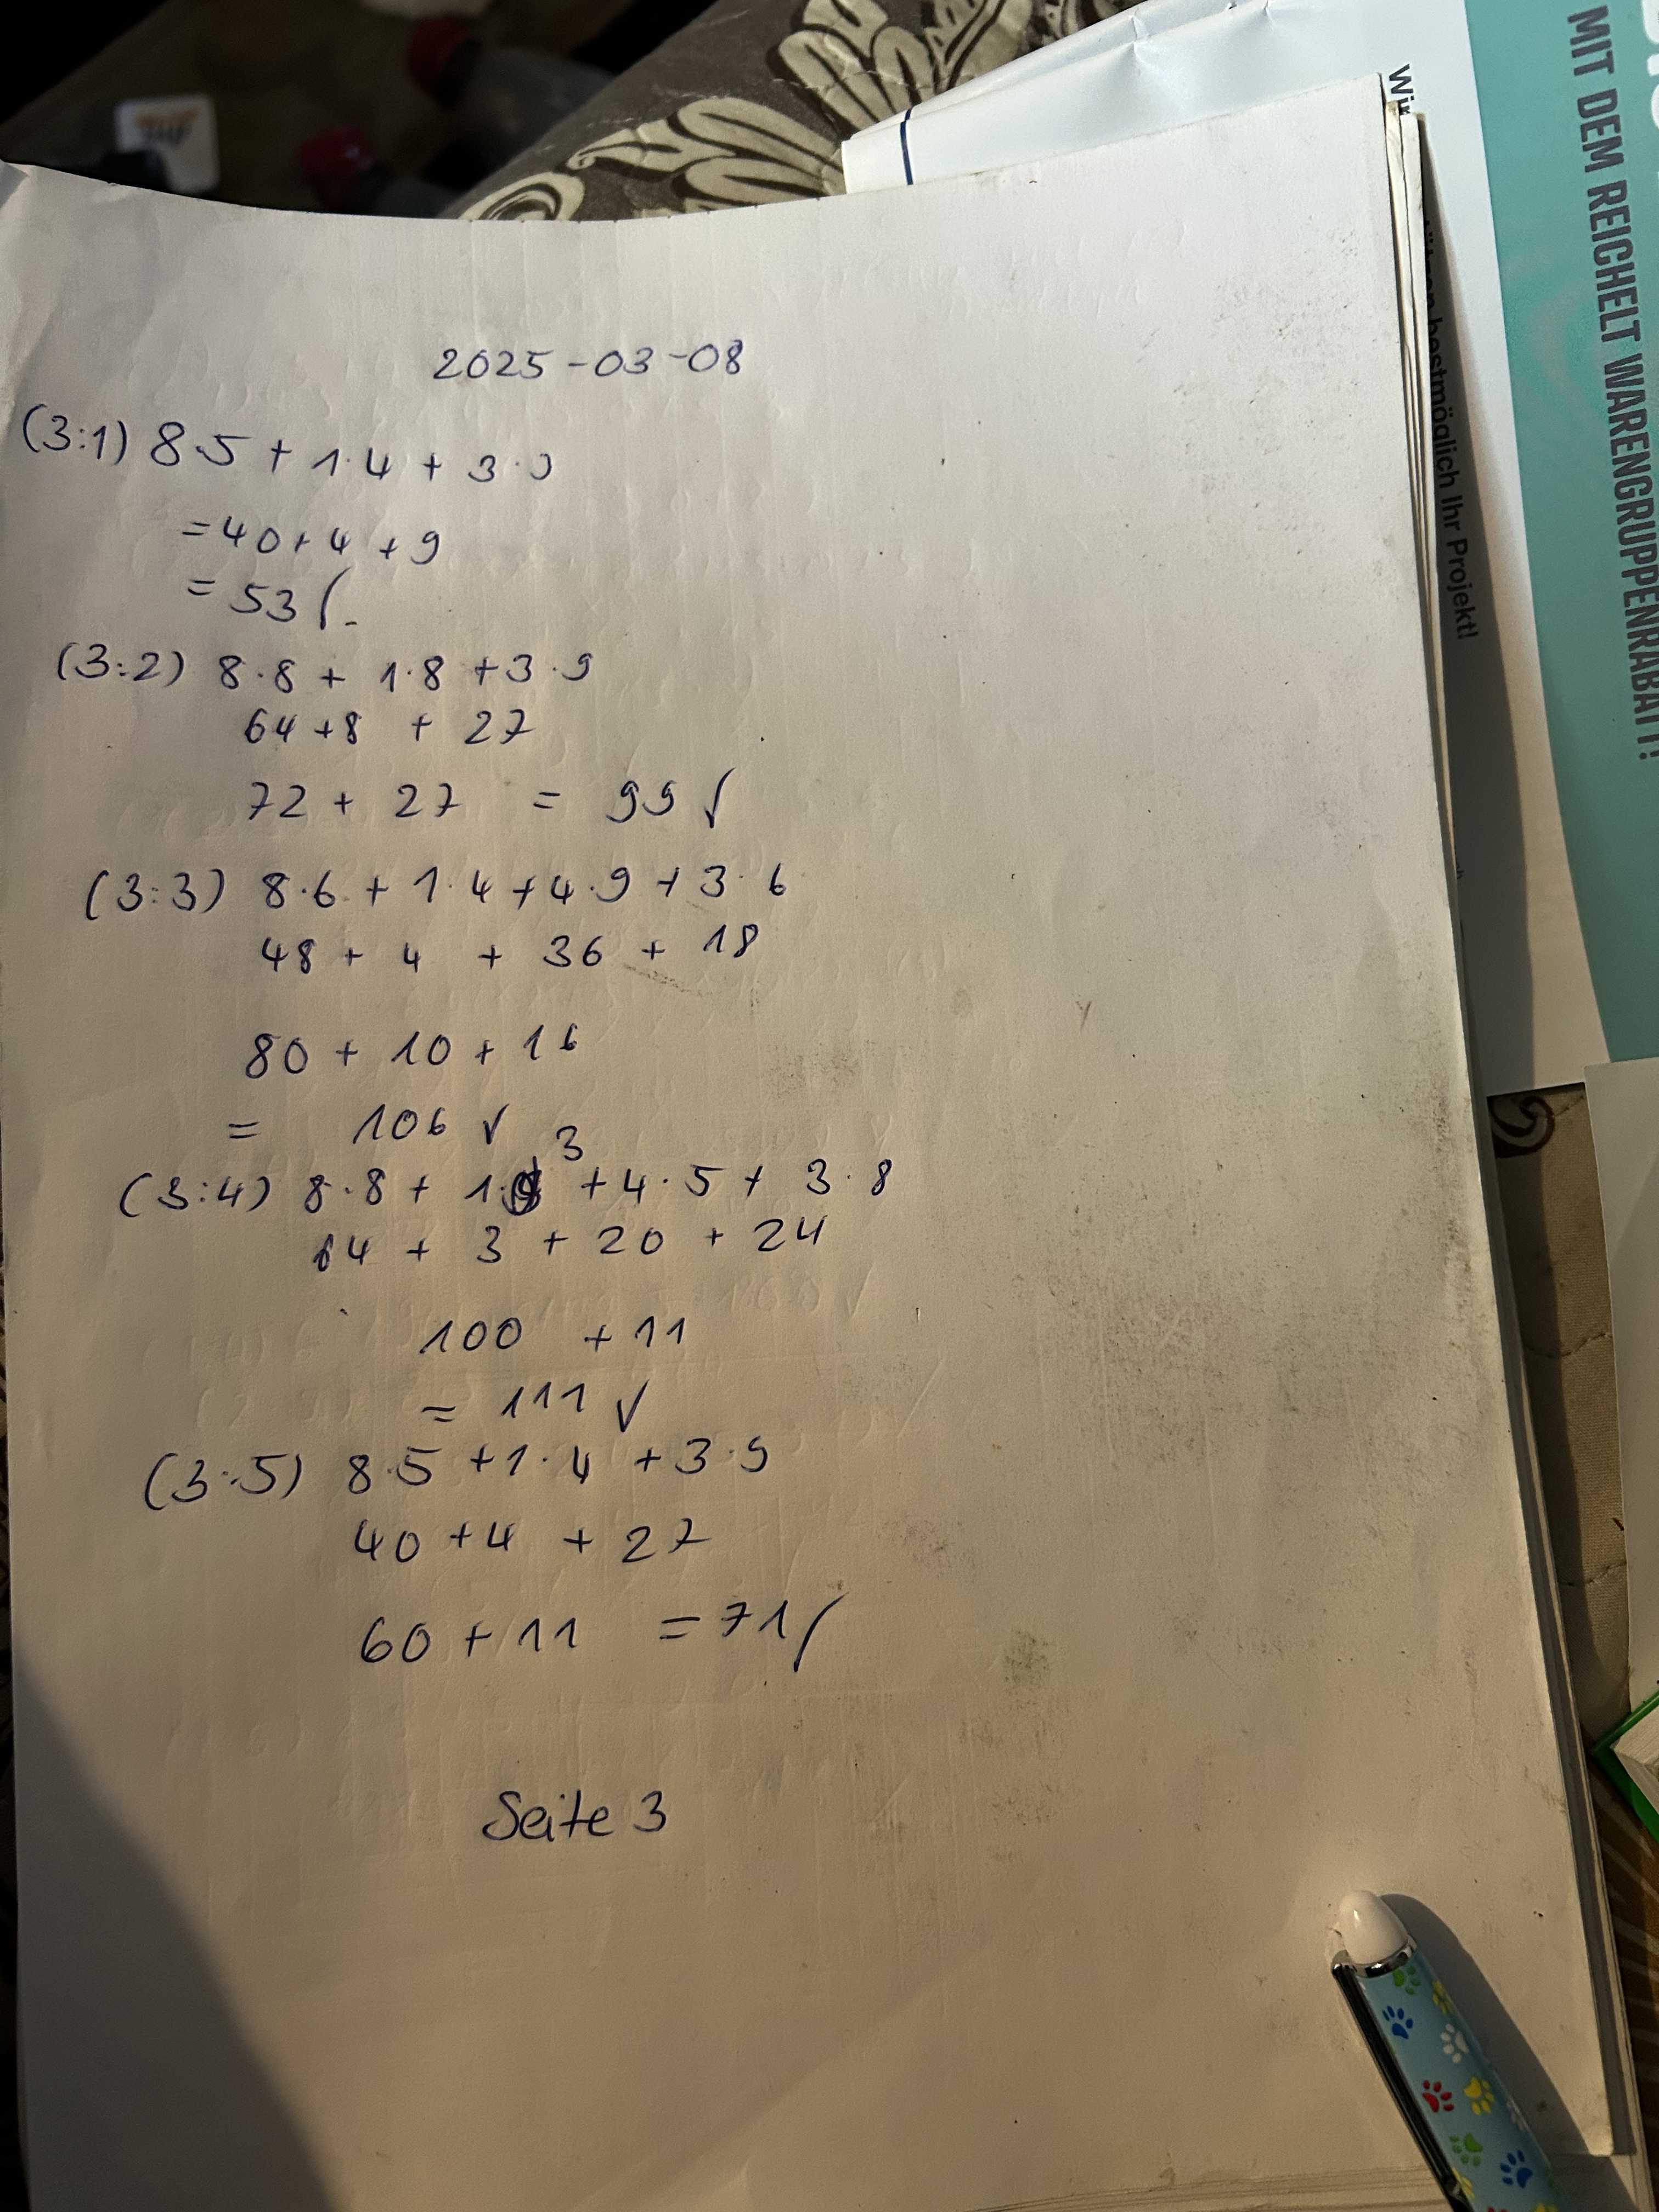 2025-03-08
(3:1) 8·5 + 1·4 + 3·3
= 40 + 4 + 9
= 53 √
(3:2) 8·8 + 1·8 + 3·9
64 + 8 + 27
72 + 27 = 99 √
(3:3) 8·6 + 1·4 + 4·9 + 3·6
48 + 4 + 36 + 18
80 + 10 + 16
= 106 √
(3:4) 8·8 + 1·3 + 4·5 + 3·8
64 + 3 + 20 + 24
100 + 11
= 111 √
(3:5) 8·5 + 1·4 + 3·9
40 + 4 + 27
60 + 11 = 71 √
Seite 3
bestmöglich Ihr Projekt!
MIT DEM REICHELT WARENGRUPPENRABATT!